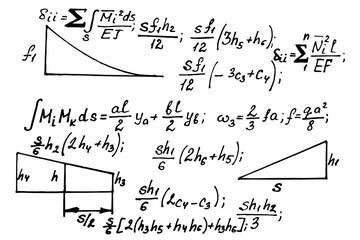 δii = ∑ ∫ M̅i²ds/EJ ; sf1h2/12 ; sf1/12 (3h5+h6);
s
f1
sf1/12 (-3c3+c4);
δii = ∑ N̅i²l/EF ;
n
1
∫MiMkds = al/2 ya + bl/2 yb; ω3 = 2/3 fa; f = qa²/8 ;
s/6 h2(2h4+h3);
sh1/6 (2h6+h5);
h4 h h3
s h1
sh1/6 (2c4-c3); sh1h2/3 ;
s/2 s/6 [2(h3h5+h4h6)+h3h6];